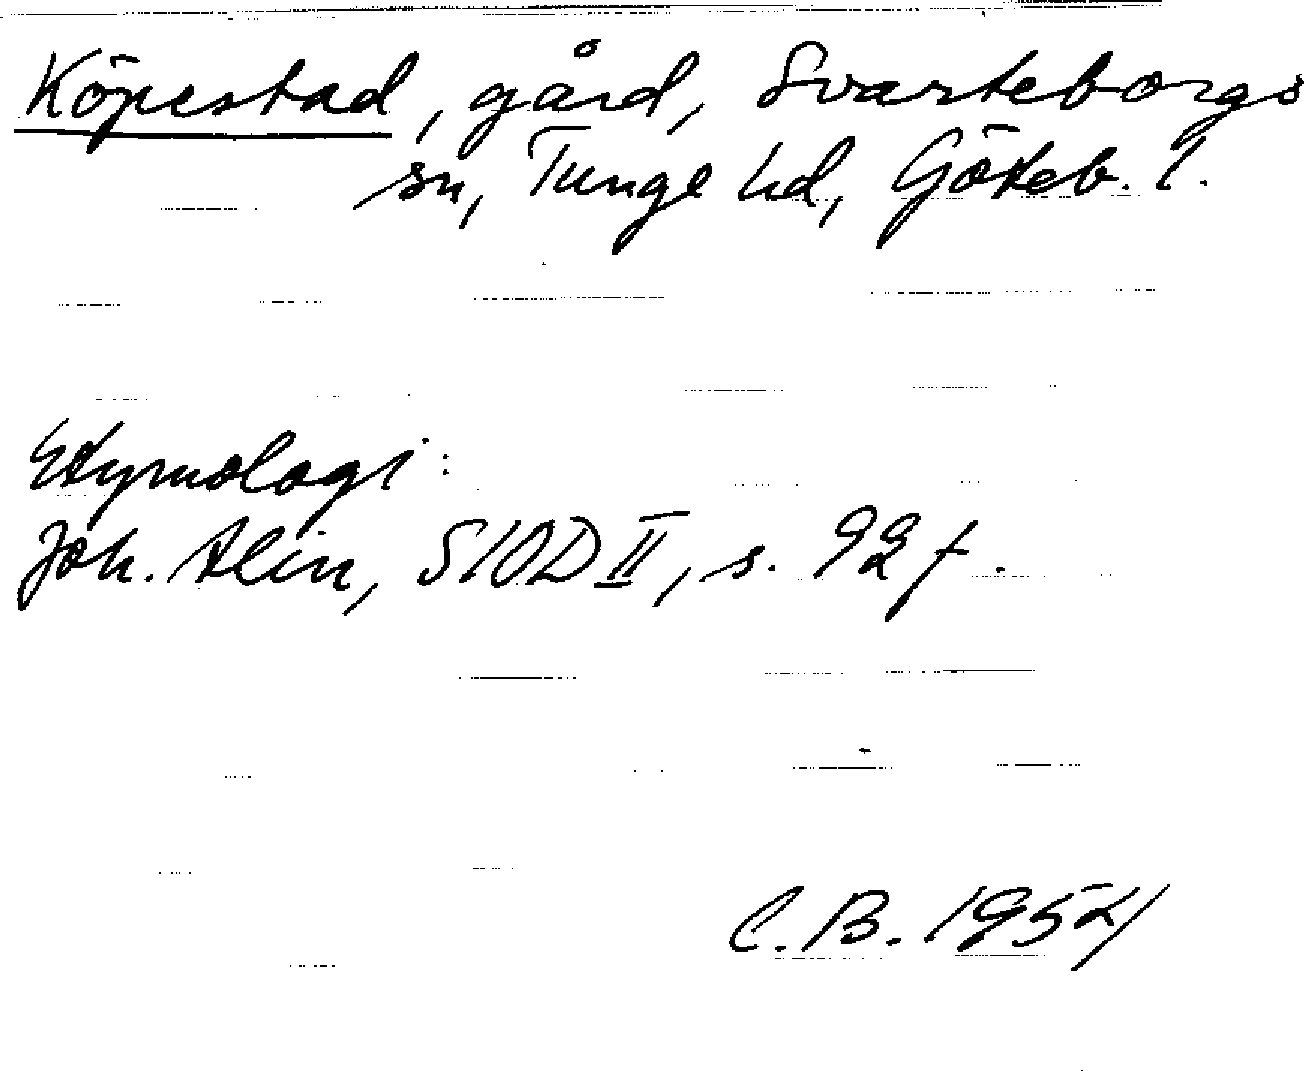 Köpestad, gård, Svarteborgs
sn, Tunge hd, Göteb. l.
Etymologi:
Joh. Alin, SIOD II, s. 92 f.
C. B. 1954